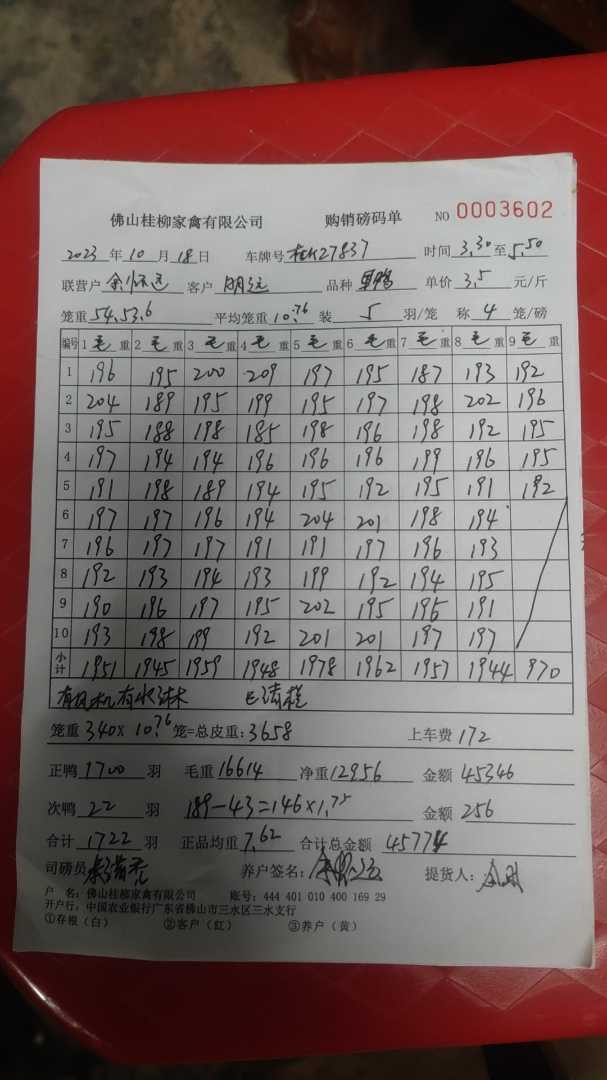 佛山桂柳家禽有限公司 购销磅码单 NO 0003602
2023 年 10 月 18 日 车牌号 桂K27837 时间 3.30 至 5.50
联营户 客户 明远 品种 单价 3.5 元/斤
笼重 54.53.6 平均笼重 10.76 装 5 羽/笼 称 4 笼/磅
编号 1 毛 重 2 毛 重 3 毛 重 4 毛 重 5 毛 重 6 毛 重 7 毛 重 8 毛 重 9 毛 重
1 196 195 200 209 197 195 187 193 192
2 204 189 195 199 195 197 198 202 196
3 195 188 198 185 198 196 198 192 195
4 197 194 194 196 196 196 199 196 195
5 191 198 189 194 195 192 195 191 192
6 197 197 196 194 204 201 198 194
7 196 197 197 191 191 197 196 193
8 192 193 194 193 199 192 194 195
9 190 196 197 195 202 195 195 191
10 193 198 199 192 201 201 197 197
小计 1951 1945 1959 1948 1978 1962 1957 1944 970
有风机有水淋 已清槽
笼重 340X 10.76 笼=总皮重: 3658 上车费 172
正鸭 1700 羽 毛重 16614 净重 12956 金额 45346
次鸭 22 羽 189-43=146×1.75 金额 256
合计 1722 羽 正品均重 7.62 合计总金额 45774
司磅员 养户签名: 提货人:
户 名: 佛山桂柳家禽有限公司 账号: 444 401 010 400 169 29
开户行: 中国农业银行广东省佛山市三水区三水支行
①存根（白） ②客户（红） ③养户（黄）